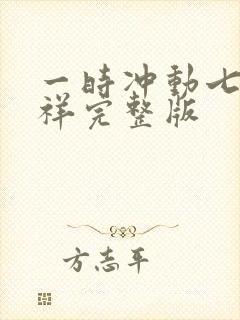 一时冲动七
祥完整版
方志平